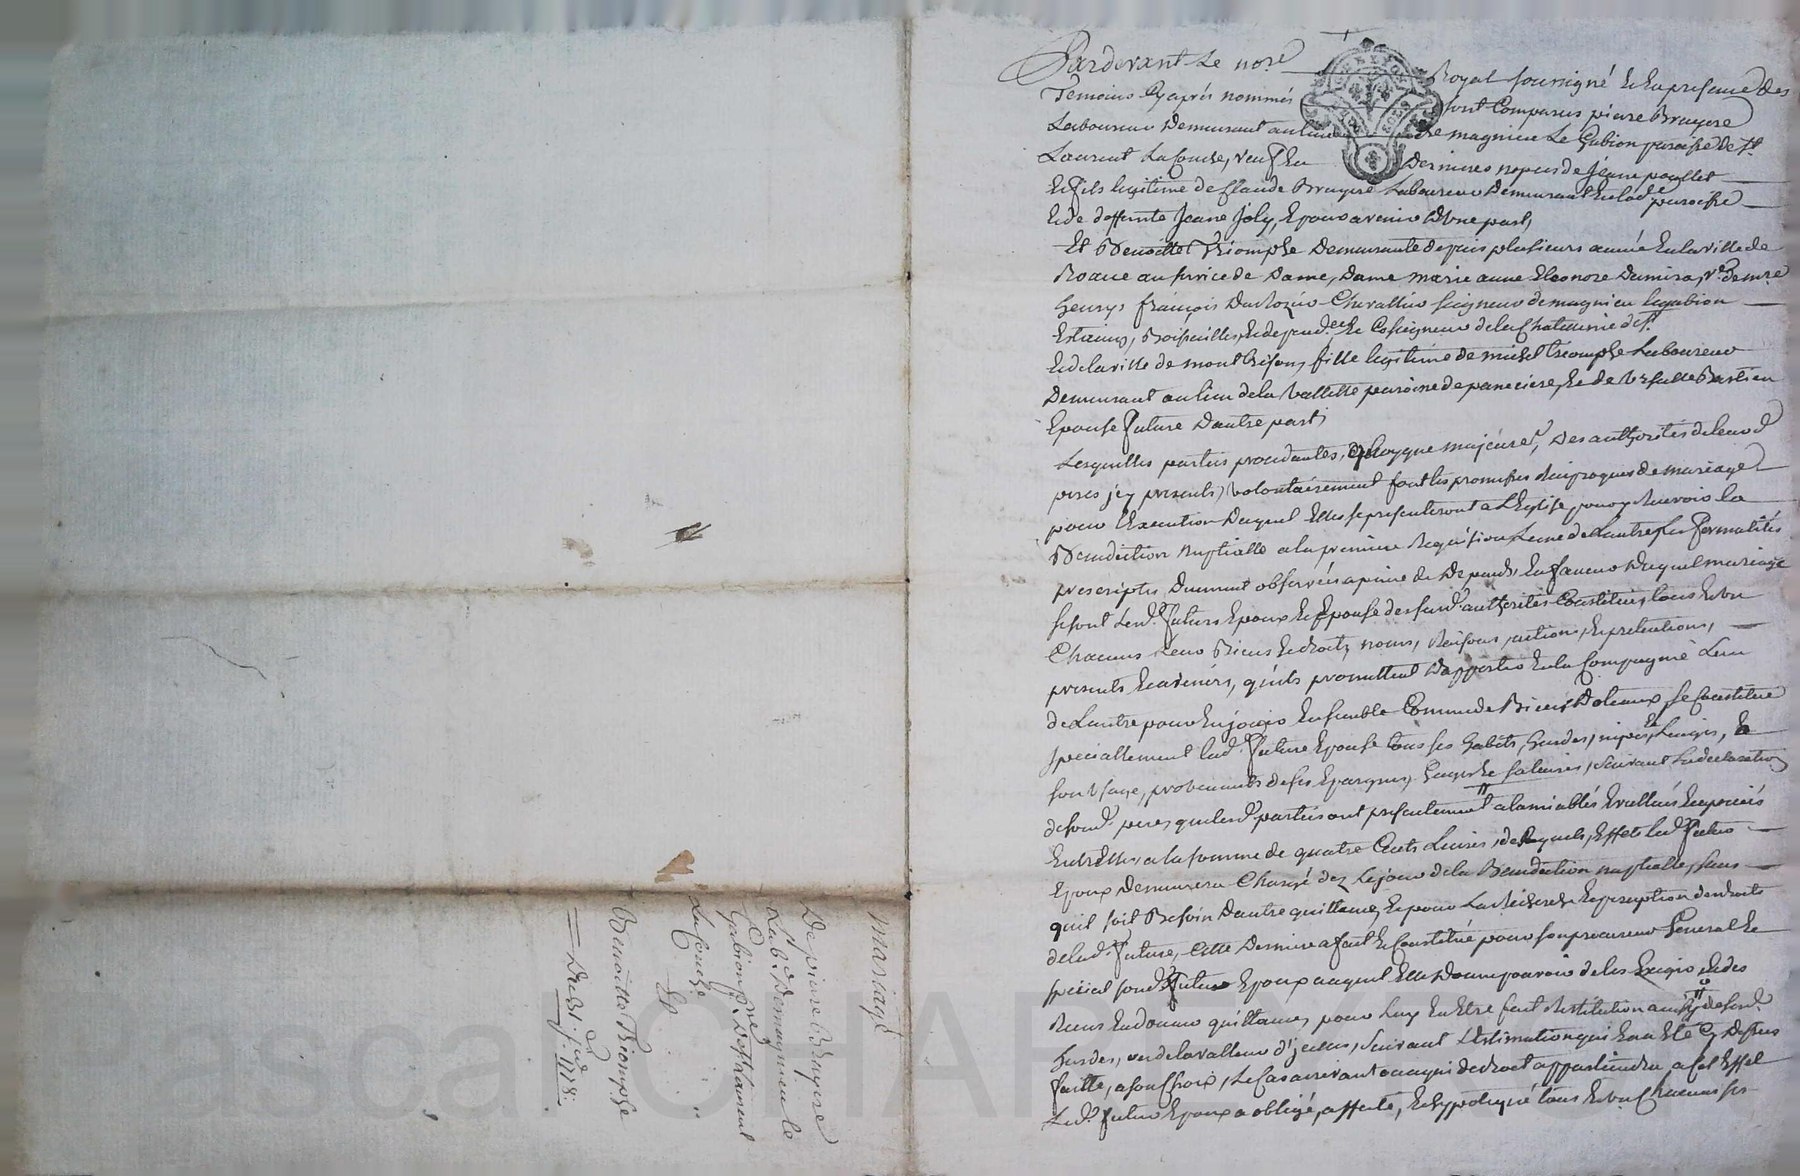 Pardevant Le nore Royal soussigné et en presence des
Temoins Cy après nommés sont Comparus pierre Bruyere
Laboureur Demeurant au lieu de magnieu Le Gabion paroisse de St
Laurent La Conche, veuf en Dernieres nopces de Jeane poullet
et fils legitime de Claude Bruyere Laboureur Demeurant en lad. paroisse
et de deffunte Jeane Joly, Epoux avenir D'une part,
Et Benoitte Triomphe Demeurante depuis plusieurs année en la ville de
Roane au service de Dame, Dame marie anne Eleonore Damira, ve. de mre
henry françois Chevallier seigneur de magnieu le gabion
Estaing, et Coseigneur de la Chatelenie de
et de la ville de montbrison, fille legitime de michel triomphe Laboureur
Demeurant au lieu de la Vallette paroisse de paneciere, et de Bertien
Epouse future D'autre part,
Lesquelles parties procedantes, quoyque majeures, Des authorités de leurd.
peres jcy presents, volontairement font les promesses Reciproques de mariage
pour l'Execution Duquel Elles se presenteront a L'Eglise pour y Recevoir la
Benediction nuptialle a la premiere Requisition L'une de L'autre les formalités
prescriptes Duement observées a peine de Depends, En faveur Duquel mariage
se sont Lesd. futurs Epoux et Epouse desd. authorités Constitués tous et un
Chacuns Leur Biens et droits, noms, Raisons, actions, et pretentions,
presents et avenirs, qu'ils promettent D'apporter En la Compagnie L'un
de L'autre pour En jouir Ensemble Comme de Biens Dotaux, se Constitue
specialement lad. future Epouse tous ses habits, hardes, nipes et Linges, a
son usage, provenants de ses Epargnes, Gages et salaires, suivant La declaration
de sond. pere, que lesd. parties ont presentement a lamiables Evallués et apreciés
Entr'elles a la somme de quatre Cents Livres, desquels Effets led. futur
Epoux Demeurera Chargé dez Le jour de la Benediction nuptialle, sans
qu'il soit Besoin D'autre quittance, et pour La Recherche et perception des droits
de lad. future, Cette Derniere a fait et Constitué pour son procureur General et
special sond. futur Epoux auquel Elle Donne pouvoir de les Exiger et des
Reçus En donner quittances, pour luy En Etre fait Restitution ainsy de sesd.
hardes, ou de la valleur d'jcelles, suivant L'Estimation qui En a Eté Cy Dessus
faitte, a son Choix, Le Cas arrivant ou a qui de droit appartiendra a cet Effet
Led. futur Epoux a obligé, affecté, et hypotequé tous et un Chacuns ses
mariage
De pierre Bruyere
Lab. De magnieu le
Gabion, pse. De St Laurent
La Conche
Et
Benoitte Triomphe
Du 21. jud. 1778.
Pascal CHAREYRON